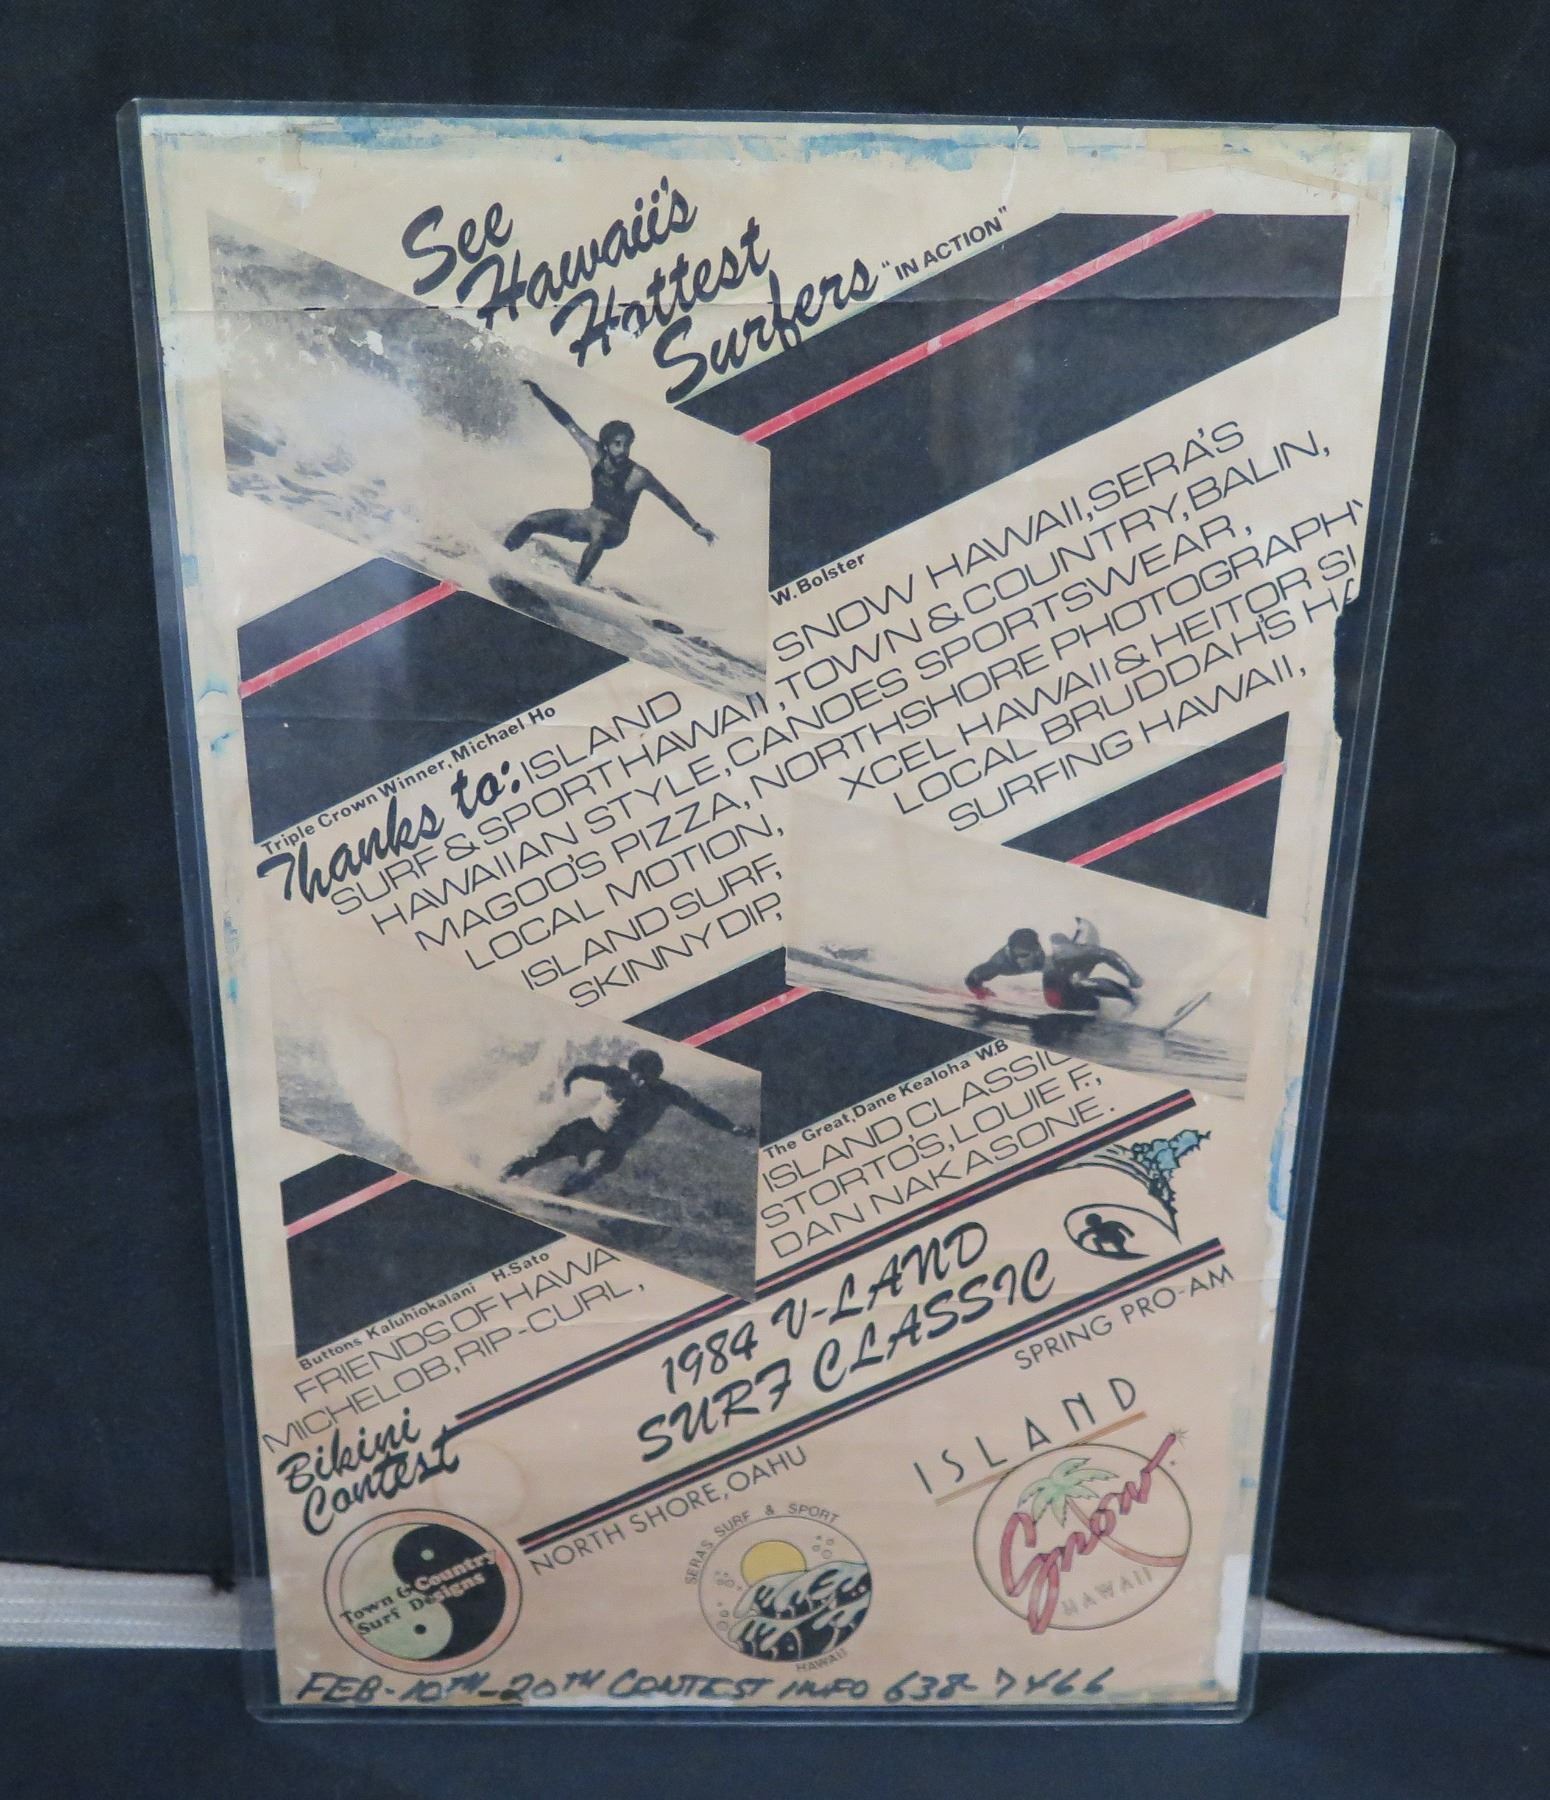 See
Hawaii's
Hottest
Surfers "IN ACTION"
W.Bolster
Triple Crown Winner, Michael Ho
Thanks to: ISLAND
SURF & SPORT HAWAII,
HAWAIIAN STYLE,
MAGOO'S PIZZA,
LOCAL MOTION,
ISLAND SURF,
SKINNY DIP,
SNOW HAWAII, SERA'S
TOWN & COUNTRY, BALIN,
CANOES SPORTSWEAR,
NORTHSHORE PHOTOGRAPHY
XCEL HAWAII & HEITOR
LOCAL BRUDDAH'S
SURFING HAWAII,
The Great, Dane Kealoha W.B
ISLAND CLASSIC
STORTO'S, LOUIE F.,
DAN NAKASONE.
Buttons Kaluhiokalani H.Sato
FRIENDS OF HAWA
MICHELOB, RIP-CURL,
Bikini
Contest
1984 V-LAND
SURF CLASSIC
SPRING PRO-AM
NORTH SHORE, OAHU
Town & Country
Surf Designs
SERAS SURF & SPORT
HAWAII
ISLAND
Snow
HAWAII
FEB-10TH-20TH CONTEST INFO 638-7466